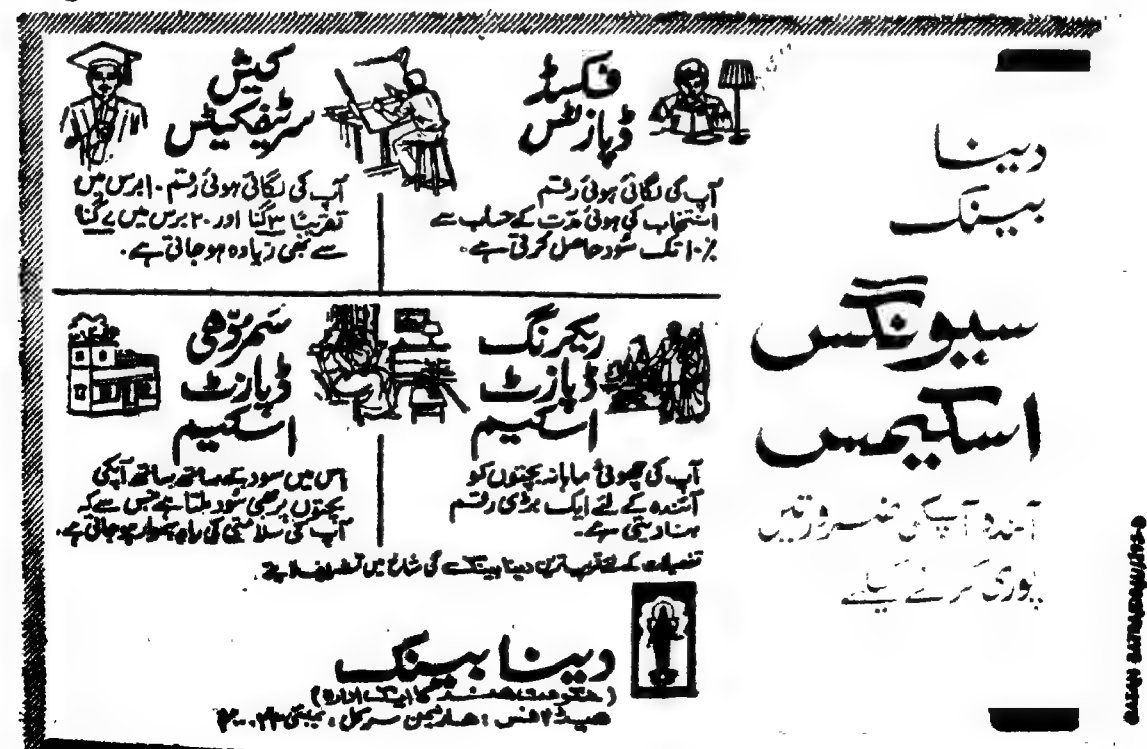 دینا
بینک
سیونگس
اسکیمس
آئندہ آپکی ضرورتیں
پوری کرنے کیلئے
فکسڈ
ڈپازٹس
آپ کی لگائی ہوئی رقم
انتخاب کی ہوئی مدّت کے حساب سے
۱۰٪ تک سُود حاصل کرتی ہے۔
کیش
سرٹیفکیٹس
آپ کی لگائی ہوئی رقم ۱۰ برس میں
تقریبًا ۳ گنا اور ۲۰ برس میں ۷ گنا
سے بھی زیادہ ہو جاتی ہے۔
ریکرنگ
ڈپازٹ
اسکیم
آپ کی چھوٹی ماہانہ بچتوں کو
آئندہ کے لئے ایک بڑی رقم
بنا دیتی ہے۔
سَمردّھی
ڈپازٹ
اسکیم
اس میں سود کے ساتھ ساتھ آپکی
بچتوں پر بھی سُود ملتا ہے جس سے کہ
آپ کی سلامتی کی راہ ہموار ہو جاتی ہے۔
تفصیلات کے لئے قریب ترین دینا بینک کی شاخ میں تشریف لایئے۔
دینا بینک
(حکومت ھند کا ایک ادارہ)
ھیڈ آفس : ھارنیمن سرکل، بمبئی